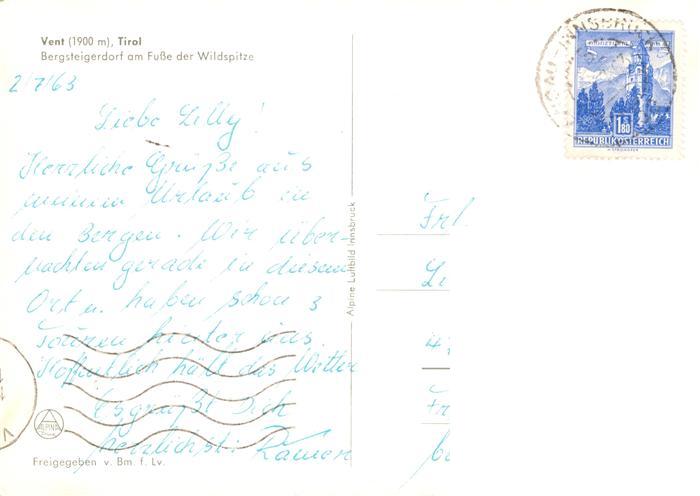 Vent (1900 m), Tirol
Bergsteigerdorf am Fuße der Wildspitze
2/7/63
Liebe Lilly!
Herzliche Grüße aus
meinem Urlaub in
den Bergen. Wir über-
nachten gerade in diesem
Ort u. haben schon 3
Touren hinter uns.
Hoffentlich hält das Wetter
Es grüßt Dich
herzlichst:
ALPINA
Freigegeben v. Bm. f. Lv.
Alpine Luftbild Innsbruck
INNSBRUCK
1.80
REPUBLIK ÖSTERREICH
Frl